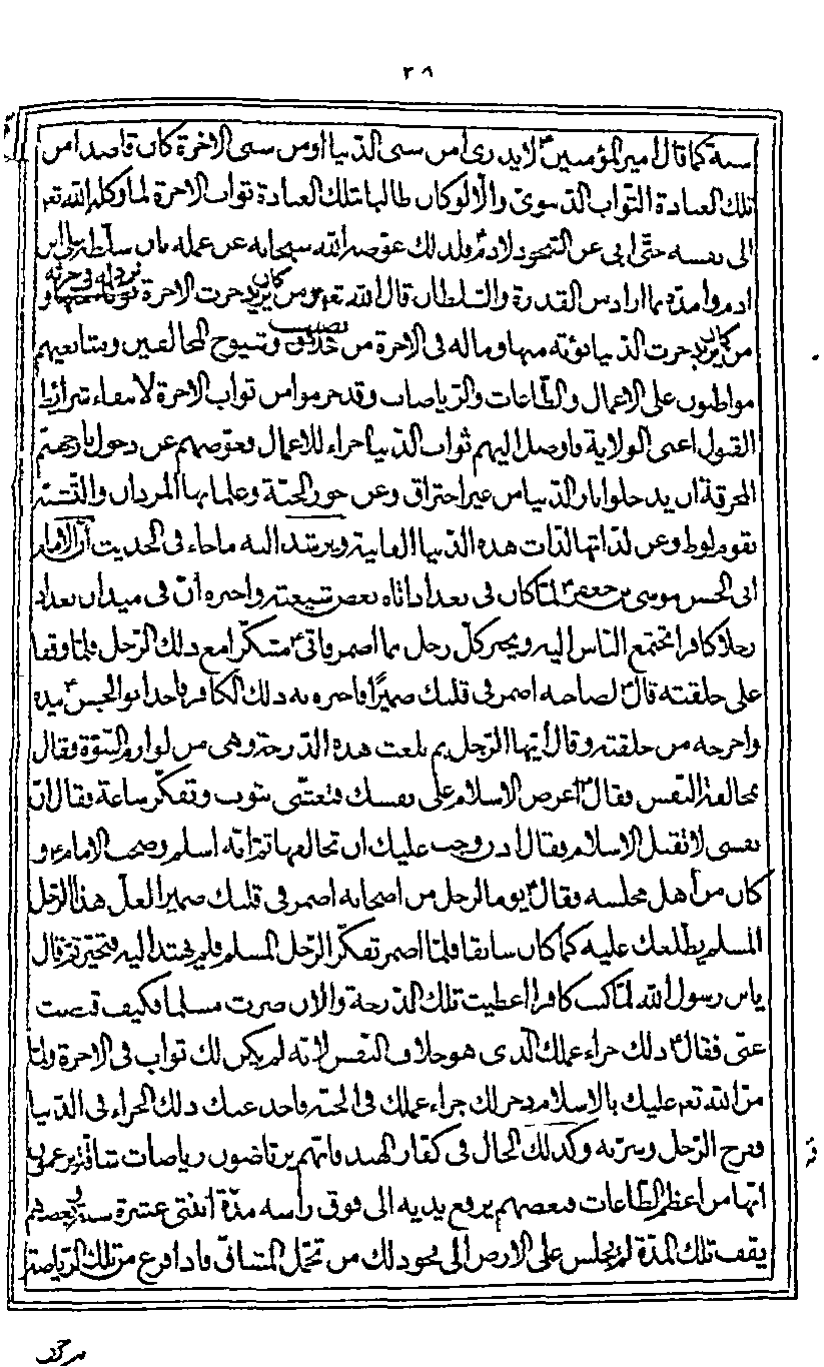 ٣٨
سنة كما قال امير المؤمنين لا يدرى امن سنى الدنيا او من سنى الاخرة كان قاصدا من
تلك العبادة الثواب الدنيوى والا لو كان طالبا بتلك العبادة ثواب الاخرة لما وكله الله تعم
الى نفسه حتى ابى عن السجود لادم فلذلك عوضه الله سبحانه عن عمله بان سلطه على ابن
ادم وامده بما اراد من القدرة والسلطان قال الله تعم ومن كان يريد حرث الاخرة نزد له فى حرثه و
من كان يريد حرث الدنيا نؤته منها وما له فى الاخرة من نصيب وشيوخ المخالفين ومتابعيهم
مواظبون على الاعمال والطاعات والرياضات وقد حرموا من ثواب الاخرة لانتفاء شرائط
القبول اعنى الولاية فاوصل اليهم ثواب الدنيا جزاء للاعمال فعوضهم عن دخول نار جهنم
المحرقة ان يدخلوا نار الدنيا من غير احتراق وعن حور الجنة وغلمانها المردان والتشبه
بقوم لوط وعن لذاتها لذات هذه الدنيا الفانية ويرشد اليه ما جاء فى الحديث ان الامام
ابى الحسن موسى بن جعفر لما كان فى بغداد اتاه بعض شيعته واخبره ان فى ميدان بغداد
رجلا كافرا تجتمع الناس اليه ويخبر كل رجل بما اضمر فاتى متنكرا مع ذلك الرجل فلما وقفا
على حلقته قال لصاحبه اضمر فى قلبك ضميرا فاخبره به ذلك الكافر فاخذ ابو الحسن بيده
واخرجه من حلقته وقال ايها الرجل بم بلغت هذه الدرجة وهى من لوازم النبوة فقال
بمخالفة النفس فقال اعرض الاسلام على نفسك فتغشى بثوب وتفكر ساعة فقال ان
نفسى لا تقبل الاسلام فقال اذن وجب عليك ان تخالفها ثم انه اسلم وصحب الامام و
كان من اهل مجلسه فقال يوما لرجل من اصحابه اضمر فى قلبك ضميرا لعل هذا الرجل
المسلم يطلعك عليه كما كان سابقا فلما اضمر تفكر الرجل المسلم فلم يهتد اليه فتحير ثم قال
يا بن رسول الله لما كنت كافرا اعطيت تلك الدرجة والان صرت مسلما فكيف قبضت
عنى فقال ذلك جزاء عملك الذى هو خلاف النفس لانه لم يكن لك ثواب فى الاخرة ولما
من الله تعم عليك بالاسلام ذخر لك جزاء عملك فى الجنة واخذ عنك ذلك الجزاء فى الدنيا
ففرح الرجل وسر به وكذلك الحال فى كفار الهند فانهم يرتاضون رياضات شاقة يزعمون
انها من اعظم الطاعات فبعضهم يرفع يديه الى فوق رأسه مدة اثنتى عشرة سنة وبعضهم
يقف تلك المدة لم يجلس على الارض الى نحو ذلك من تحمل المشاق فاذا فرغ من تلك الرياضة